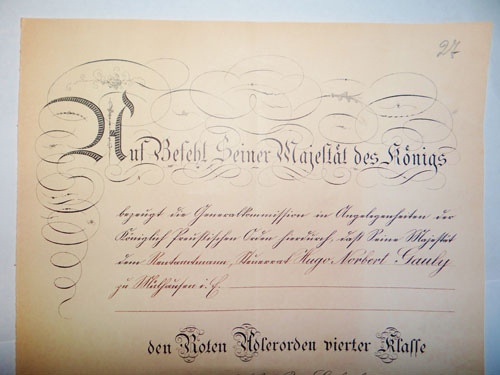 27
Auf Befehl Seiner Majestät des Königs
bezeugt die Generalkommission in Angelegenheiten der
Königlich Preußischen Orden hierdurch, daß Seine Majestät
dem Rentamtmann, Steuerrat Hugo Norbert Gauly
zu Mülhausen i. E.
den Roten Adlerorden vierter Klasse